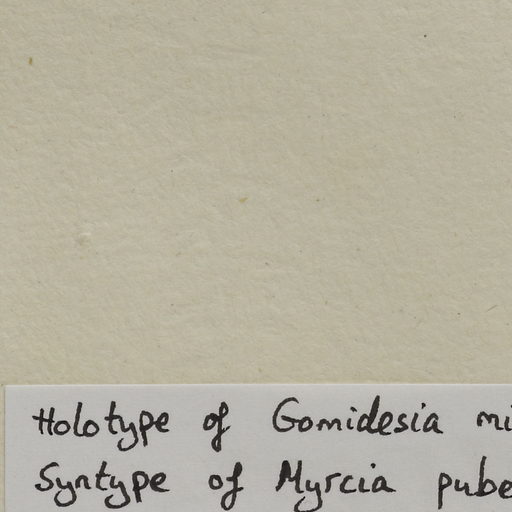 Holotype of Gomidesia mi
Syntype of Myrcia pube